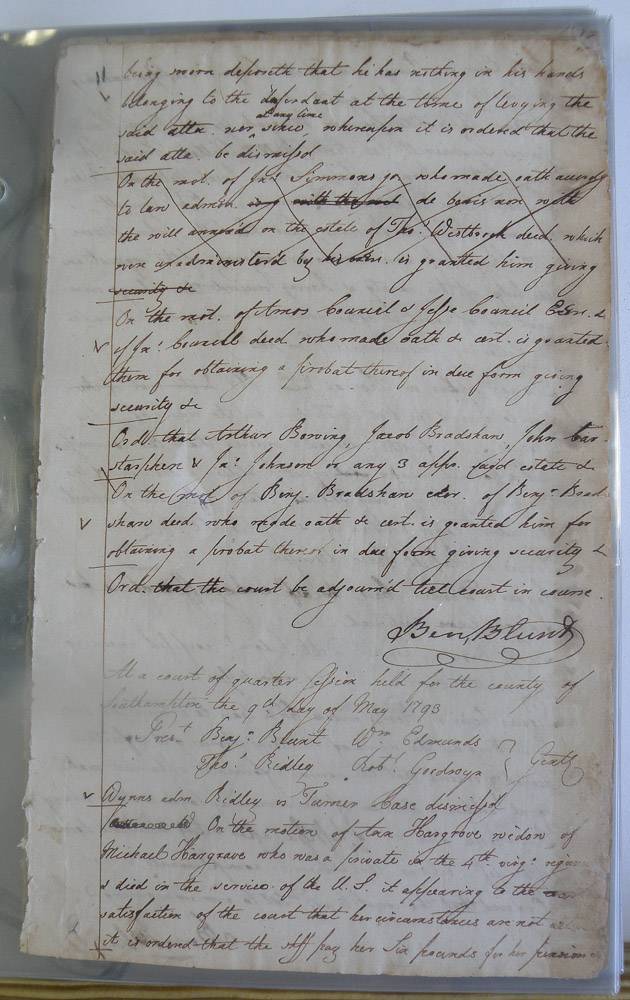 being sworn deposeth that he has nothing in his hands
belonging to the defendant at the time of levying the
at any time
said atta. nor since, whereupon it is ordered that the
said atta. be dismissed
On the mot. of Jno. Simmons who made oath
to law admin. with the de bonis non with
the will annexed on the estate of Thos. Westbrook deed. which
were unadministerd by his is granted him giving
security &
On the mot. of Amos Council & Jesse Council Exrs. &
of Jno. Council deed. who made oath & cert. is granted
them for obtaining a probat thereof in due form giving
security &
Ord. that Arthur Bowing, Jacob Bradshaw, John Car-
starphen & Jno. Johnson or any 3 appr. said estate &
On the mot. of Benj. Bradshaw exor. of Benjn. Brad
shaw deed. who made oath & cert. is granted him for
obtaining a probat thereof in due form giving security &
Ord. that the court be adjourn'd till court in course.
Ben Blunt
At a court of quarter session held for the county of
Southampton the 9th day of May 1793
Prest. Benjn. Blunt Wm. Edmunds
Thos. Ridley Robt. Goodwyn } Gentl
Wynns adm Ridley vs Turner Case dismiss'd
On the motion of Ann Hargrove widow of
Michael Hargrave who was a private in the 4th. virga. regim
& died in the service of the U.S. it appearing to the
satisfaction of the court that her circumstances are not
it is ordered that the shff pay her Six pounds for her pension